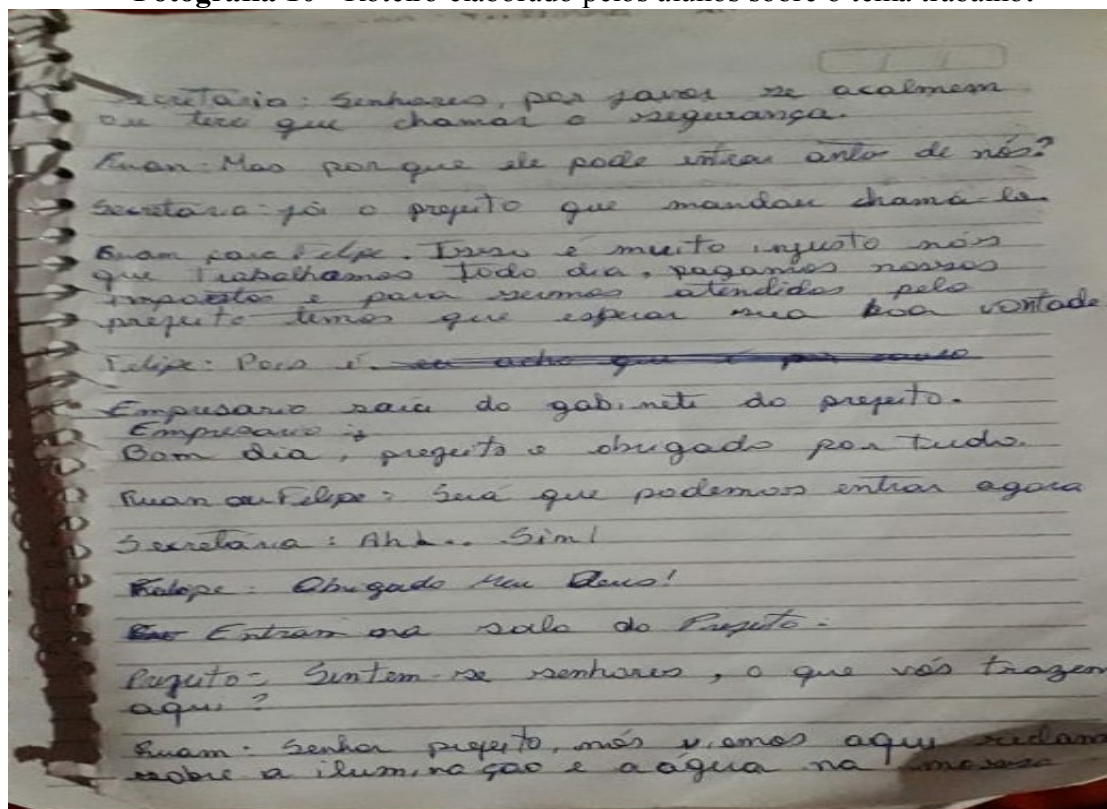 Fotografia 10 - Roteiro elaborado pelos alunos sobre o tema trabalho.
Secretaria: Senhores, por favor se acalmem
ou terei que chamar o segurança.
Ruan: Mas por que ele pode entrar antes de nós?
Secretaria: foi o prefeito que mandou chama-lo
Ruan para Felipe. Isso é muito injusto nós
que Trabalhamos todo dia, pagamos nossos
impostos e para sermos atendidos pelo
prefeito temos que esperar sua boa vontade
Felipe: Pois é. eu acho que é por causa
Empresario saia do gabinete do prefeito.
Empresario:
Bom dia, prefeito e obrigado por tudo.
Ruan ou Felipe: Será que podemos entrar agora
Secretaria: Ah... Sim!
Felipe: Obrigado Meu Deus!
Entram na sala do Prefeito.
Prefeito: Sentem-se senhores, o que vós trazem
aqui?
Ruam: Senhor prefeito, nós viemos aqui
sobre a iluminação e a água na